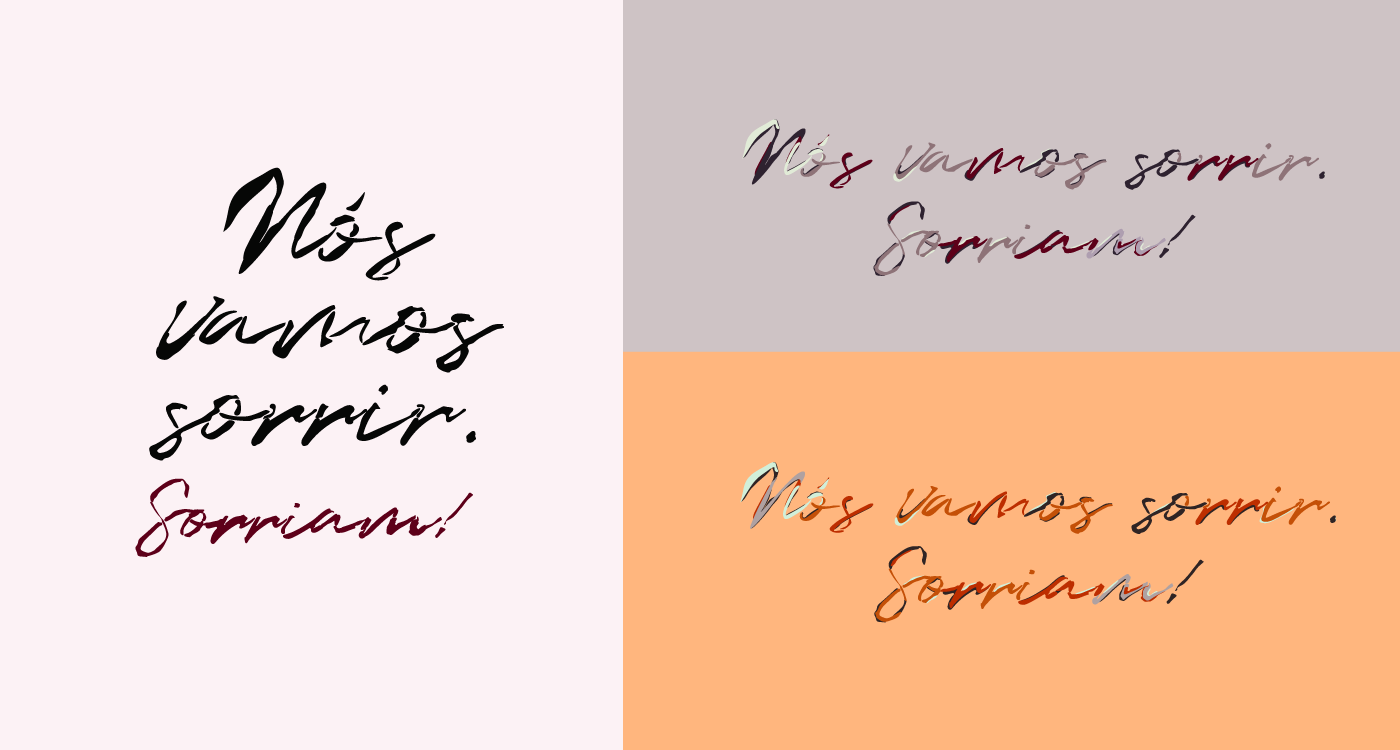 Nós
vamos
sorrir.
Sorriam!
Nós vamos sorrir.
Sorriam!
Nós vamos sorrir.
Sorriam!